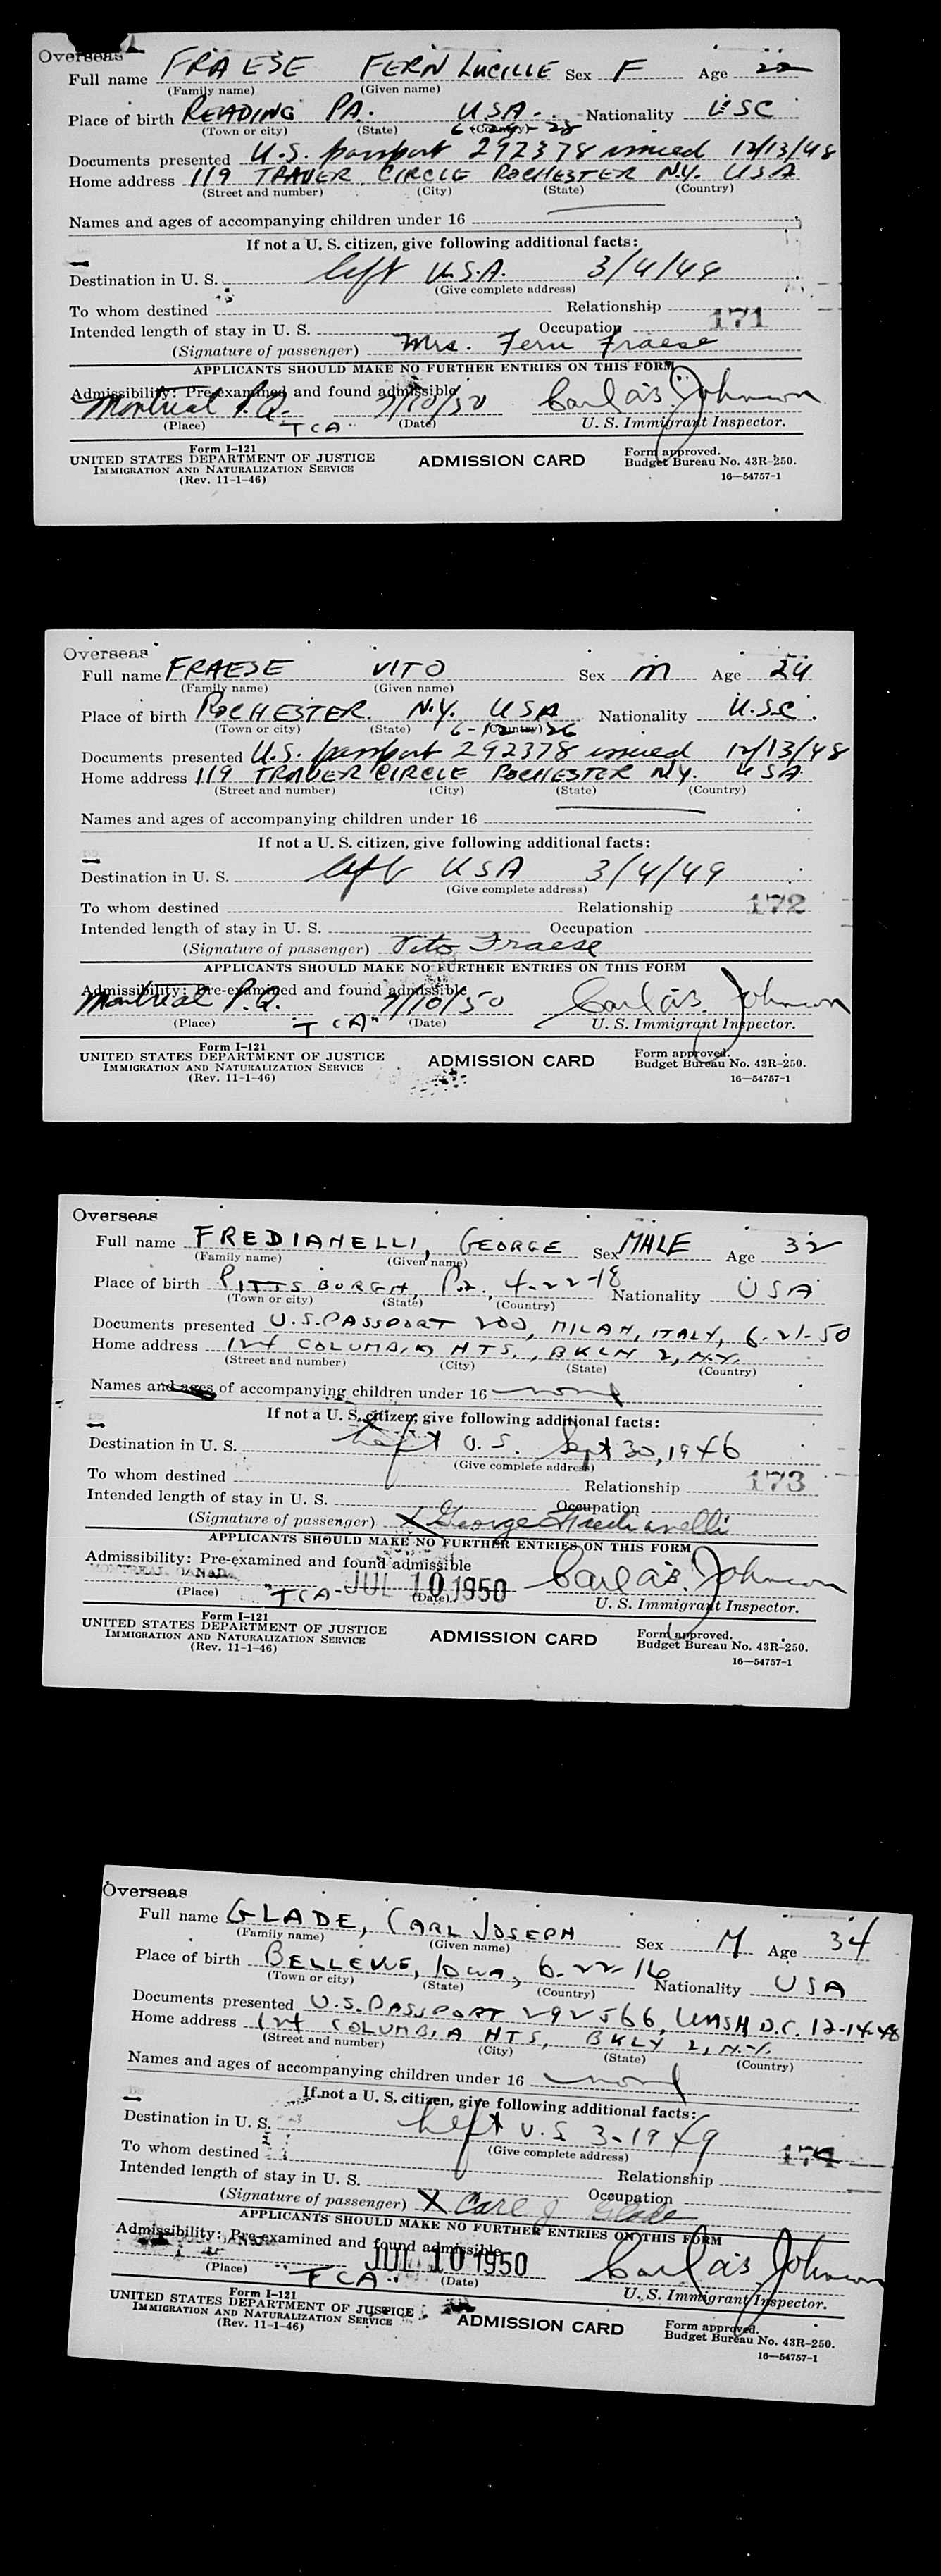 Overseas
Full name FRAESE FERN LUCILLE Sex F Age 22
(Family name) (Given name)
Place of birth READING PA. USA. Nationality USC
(Town or city) (State) (Country)
Documents presented U.S. passport 292378 issued 12/13/48
Home address 119 TRAVER CIRCLE ROCHESTER N.Y. USA
(Street and number) (City) (State) (Country)
Names and ages of accompanying children under 16
If not a U. S. citizen, give following additional facts:
Destination in U. S. left U.S.A. 3/4/49
(Give complete address)
To whom destined Relationship 171
Intended length of stay in U. S. Occupation
(Signature of passenger) Mrs. Fern Fraese
APPLICANTS SHOULD MAKE NO FURTHER ENTRIES ON THIS FORM
Admissibility: Pre-examined and found admissible
Montreal P.Q. 7/10/50 Carl as. Johnson
(Place) "TCA" (Date) U. S. Immigrant Inspector.
Form I-121
UNITED STATES DEPARTMENT OF JUSTICE ADMISSION CARD Form approved.
IMMIGRATION AND NATURALIZATION SERVICE Budget Bureau No. 43R-250.
(Rev. 11-1-46) 16—54757-1
Overseas
Full name FRAESE VITO Sex M Age 24
(Family name) (Given name)
Place of birth ROCHESTER. N.Y. USA Nationality U.S.C.
(Town or city) (State) (Country) 6-12-26
Documents presented U.S. passport 292378 issued 12/13/48
Home address 119 TRAVER CIRCLE ROCHESTER N.Y. USA
(Street and number) (City) (State) (Country)
Names and ages of accompanying children under 16
If not a U. S. citizen, give following additional facts:
Destination in U. S. left USA 3/4/49
(Give complete address)
To whom destined Relationship 172
Intended length of stay in U. S. Occupation
(Signature of passenger) Vito Fraese
APPLICANTS SHOULD MAKE NO FURTHER ENTRIES ON THIS FORM
Admissibility: Pre-examined and found admissible
Montreal P.Q. 7/10/50 Carl as. Johnson
(Place) "TCA" (Date) U. S. Immigrant Inspector.
Form I-121
UNITED STATES DEPARTMENT OF JUSTICE ADMISSION CARD Form approved.
IMMIGRATION AND NATURALIZATION SERVICE Budget Bureau No. 43R-250.
(Rev. 11-1-46) 16—54757-1
Overseas
Full name FREDIANELLI, GEORGE Sex MALE Age 32
(Family name) (Given name)
Place of birth PITTSBURGH, Pa., 4-22-18 Nationality USA
(Town or city) (State) (Country)
Documents presented U.S. PASSPORT 200, MILAN, ITALY, 6-21-50
Home address 124 COLUMBIA HTS., BKLN 2, N.Y.
(Street and number) (City) (State) (Country)
Names and ages of accompanying children under 16 none
If not a U. S. citizen, give following additional facts:
Destination in U. S. Left U.S. Sept 30, 1946
(Give complete address)
To whom destined Relationship 173
Intended length of stay in U. S. Occupation
(Signature of passenger) X George Fredianelli
APPLICANTS SHOULD MAKE NO FURTHER ENTRIES ON THIS FORM
Admissibility: Pre-examined and found admissible
MONTREAL CANADA JUL 10 1950 Carl as. Johnson
(Place) "TCA" (Date) U. S. Immigrant Inspector.
Form I-121
UNITED STATES DEPARTMENT OF JUSTICE ADMISSION CARD Form approved.
IMMIGRATION AND NATURALIZATION SERVICE Budget Bureau No. 43R-250.
(Rev. 11-1-46) 16—54757-1
Overseas
Full name GLADE, CARL JOSEPH Sex M Age 34
(Family name) (Given name)
Place of birth BELLEVUE, IOWA, 6-22-16 Nationality USA
(Town or city) (State) (Country)
Documents presented U.S. PASSPORT 292566, WASH, D.C. 12-14-48
Home address 124 COLUMBIA HTS, BKLY 2, N.Y.
(Street and number) (City) (State) (Country)
Names and ages of accompanying children under 16 none
If not a U. S. citizen, give following additional facts:
Destination in U. S. Left U.S 3-1949
(Give complete address)
To whom destined Relationship 174
Intended length of stay in U. S. Occupation
(Signature of passenger) X Carl J Glade
APPLICANTS SHOULD MAKE NO FURTHER ENTRIES ON THIS FORM
Admissibility: Pre-examined and found admissible
JUL 10 1950 Carl as Johnson
(Place) "TCA" (Date) U. S. Immigrant Inspector.
Form I-121
UNITED STATES DEPARTMENT OF JUSTICE ADMISSION CARD Form approved.
IMMIGRATION AND NATURALIZATION SERVICE Budget Bureau No. 43R-250.
(Rev. 11-1-46) 16—54757-1